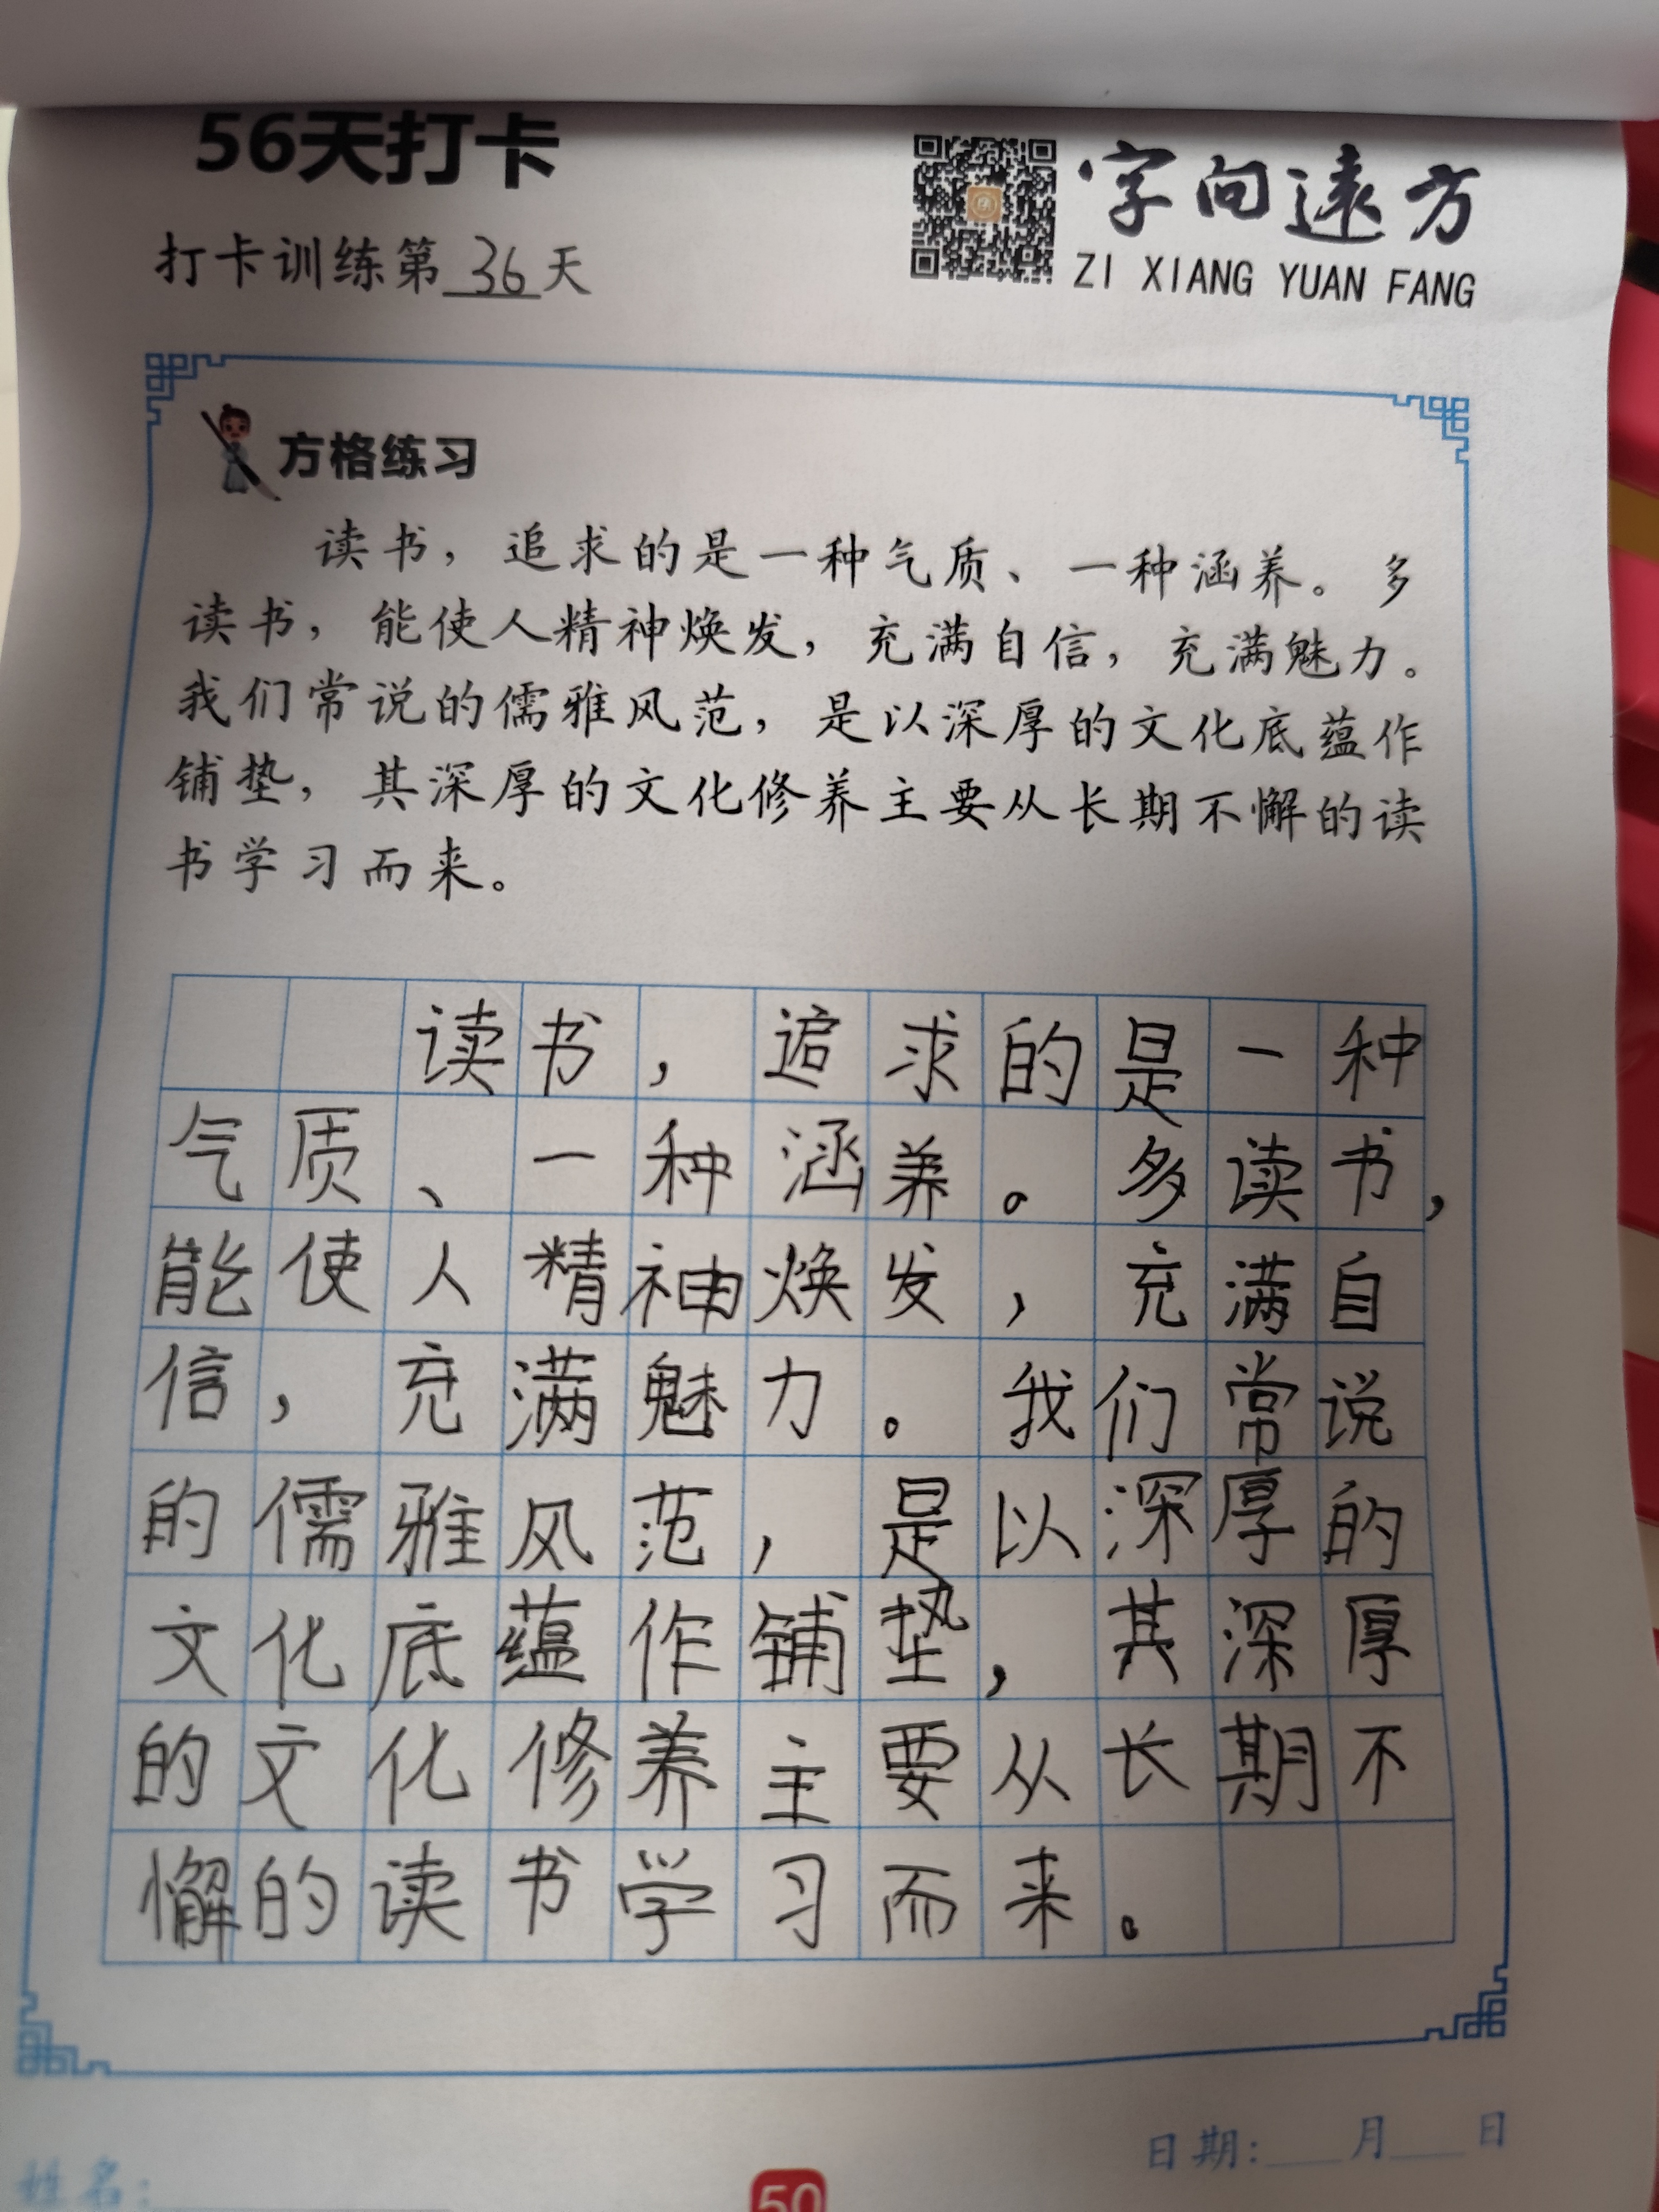 56天打卡
字向遠方
ZI XIANG YUAN FANG
打卡训练第36天
方格练习
读书，追求的是一种气质、一种涵养。多
读书，能使人精神焕发，充满自信，充满魅力。
我们常说的儒雅风范，是以深厚的文化底蕴作
铺垫，其深厚的文化修养主要从长期不懈的读
书学习而来。
读书，追求的是一种
气质、一种涵养。多读书，
能使人精神焕发，充满自
信，充满魅力。我们常说
的儒雅风范，是以深厚的
文化底蕴作铺垫，其深厚
的文化修养主要从长期不
懈的读书学习而来。
姓名：
日期：月日
50